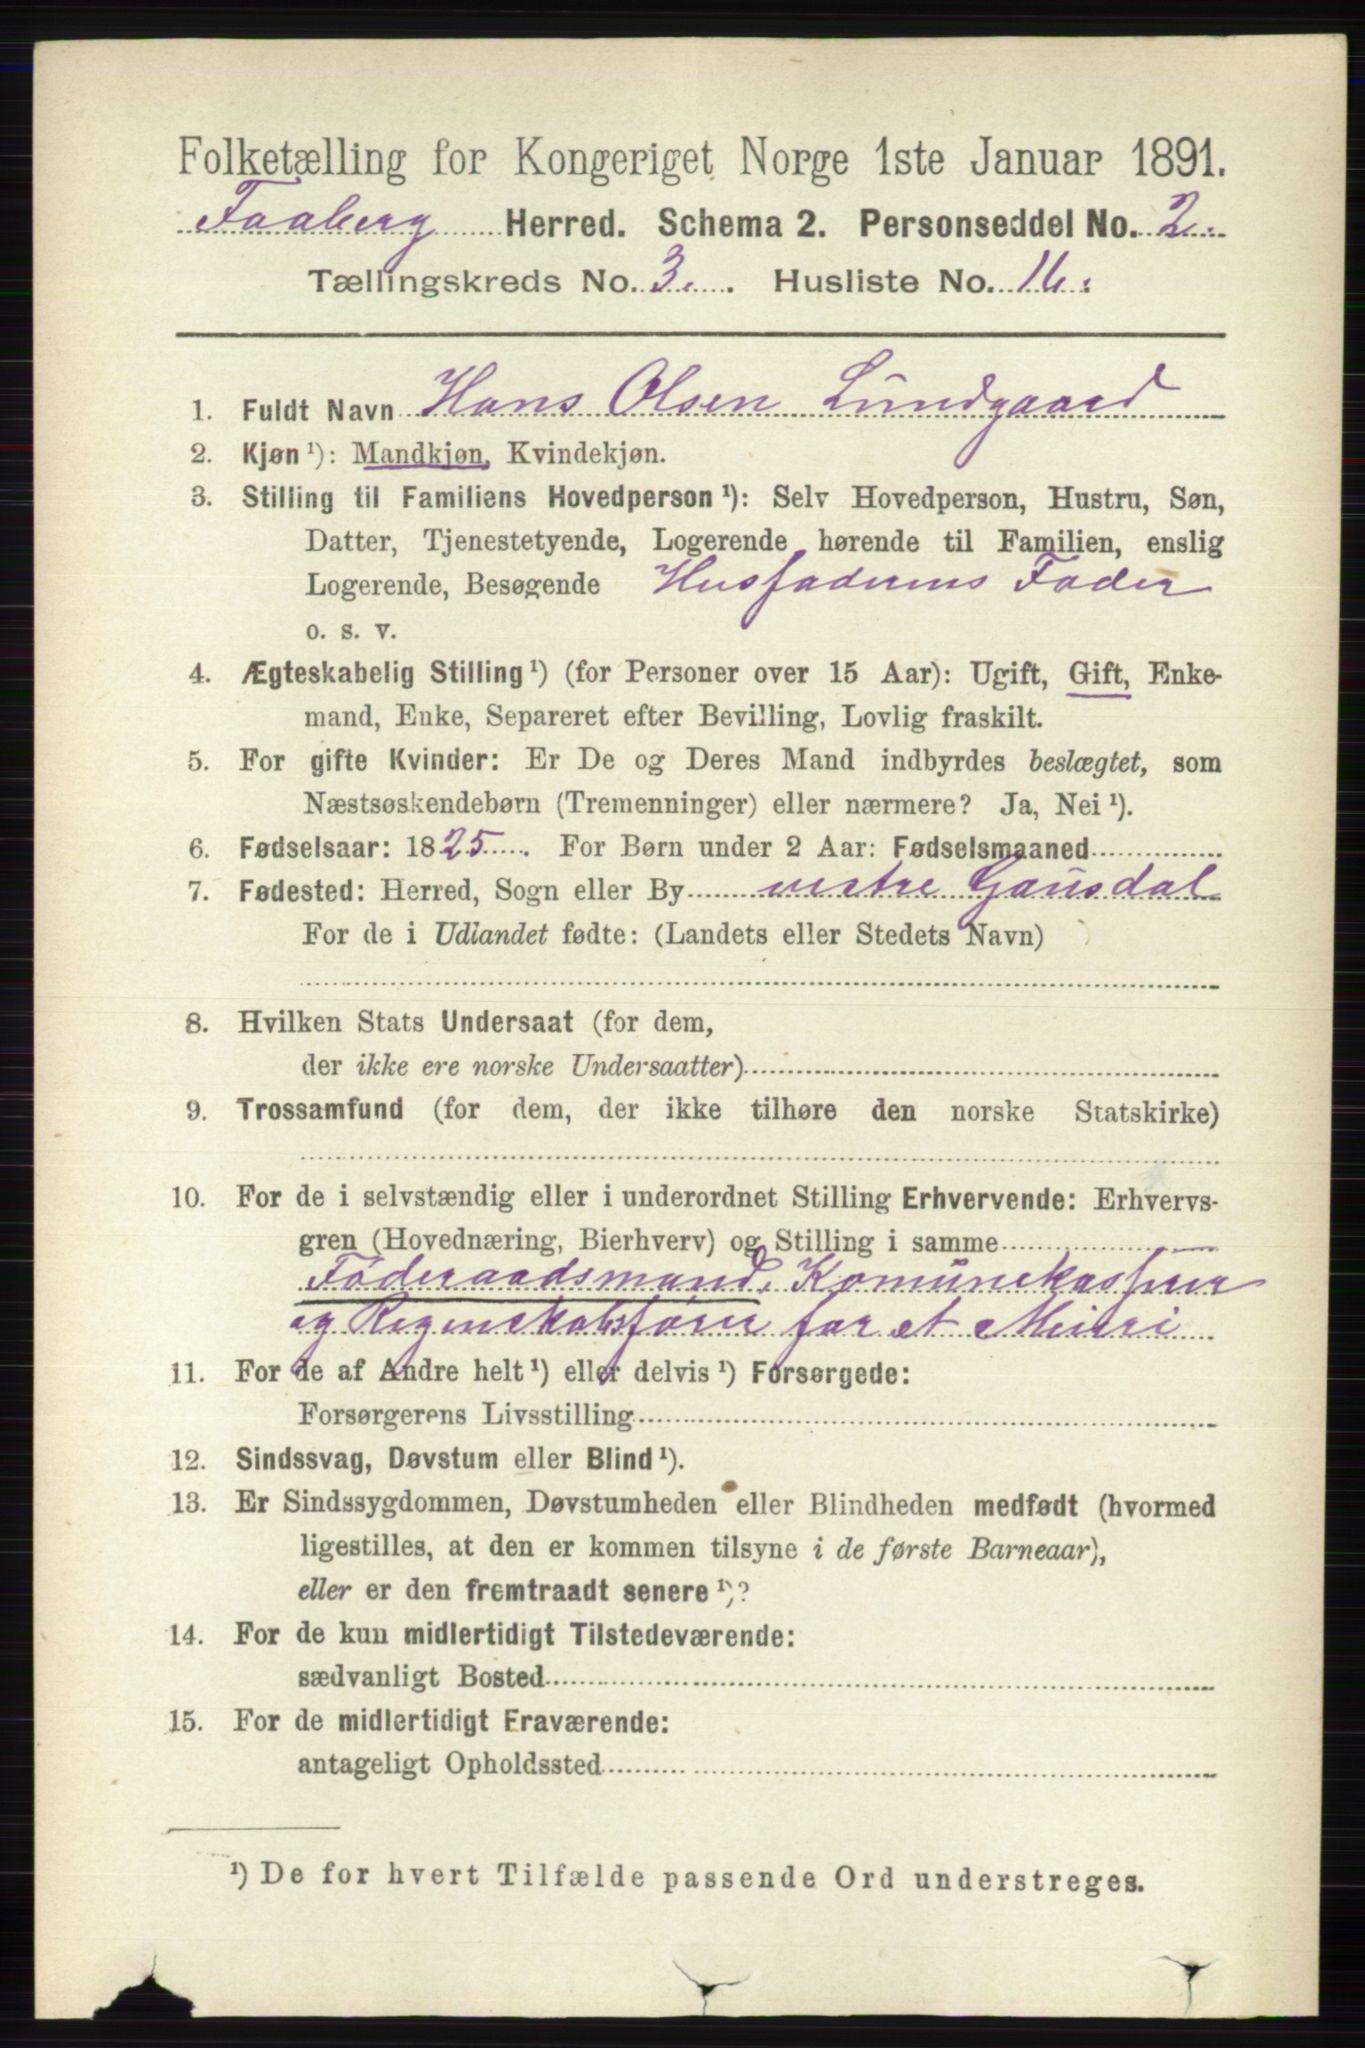 Folketælling for Kongeriget Norge 1ste Januar 1891.
Faaberg Herred. Schema 2. Personseddel No. 2.
Tællingskreds No. 3. Husliste No. 16.
1. Fuldt Navn Hans Olsen Lundgaard
2. Kjøn ¹): Mandkjøn, Kvindekjøn.
3. Stilling til Familiens Hovedperson ¹): Selv Hovedperson, Hustru, Søn,
Datter, Tjenestetyende, Logerende hørende til Familien, enslig
Logerende, Besøgende Husfaderens Fader
o. s. v.
4. Ægteskabelig Stilling ¹) (for Personer over 15 Aar): Ugift, Gift, Enke-
mand, Enke, Separeret efter Bevilling, Lovlig fraskilt.
5. For gifte Kvinder: Er De og Deres Mand indbyrdes beslægtet, som
Næstsøskendebørn (Tremenninger) eller nærmere? Ja, Nei ¹).
6. Fødselsaar: 1825. For Børn under 2 Aar: Fødselsmaaned
7. Fødested: Herred, Sogn eller By vestre Gausdal
For de i Udlandet fødte: (Landets eller Stedets Navn)
8. Hvilken Stats Undersaat (for dem,
der ikke ere norske Undersaatter)
9. Trossamfund (for dem, der ikke tilhøre den norske Statskirke)
10. For de i selvstændig eller i underordnet Stilling Erhvervende: Erhvervs-
gren (Hovednæring, Bierhverv) og Stilling i samme
Föderaadsmand, Komunekasserer
og Regenskabsfører for et Meieri
11. For de af Andre helt ¹) eller delvis ¹) Forsørgede:
Forsørgerens Livsstilling
12. Sindssvag, Døvstum eller Blind ¹).
13. Er Sindssygdommen, Døvstumheden eller Blindheden medfødt (hvormed
ligestilles, at den er kommen tilsyne i de første Barneaar),
eller er den fremtraadt senere ¹)?
14. For de kun midlertidigt Tilstedeværende:
sædvanligt Bosted
15. For de midlertidigt Fraværende:
antageligt Opholdssted
¹) De for hvert Tilfælde passende Ord understreges.